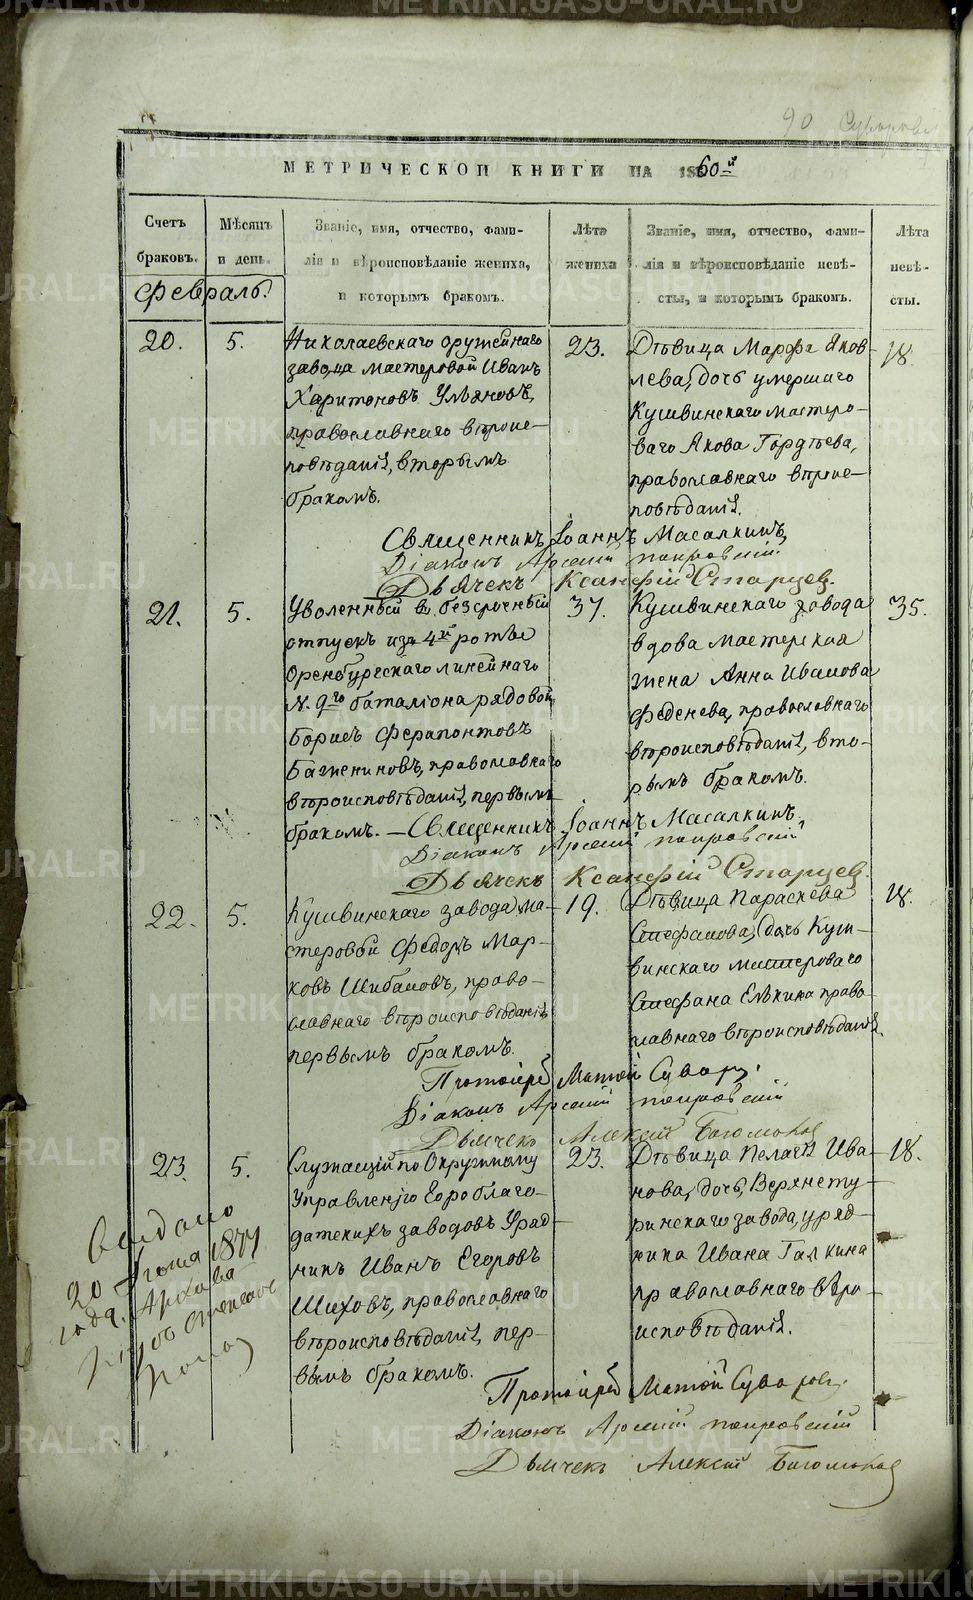 90
МЕТРИЧЕСКОЙ КНИГИ НА 1860й
Счетъ браковъ.
Мѣсяцъ и день.
Званіе, имя, отчество, фами-
лія и вѣроисповѣданіе жениха,
и которымъ бракомъ.
Лѣта жениха
Званіе, имя, отчество, фами-
лія и вѣроисповѣданіе невѣ-
сты, и которымъ бракомъ.
Лѣта невѣ-
сты.
Февраль.
20.
5.
Николаевскаго оружейнаго
завода мастеровой Иванъ
Харитоновъ Ульяновъ,
православнаго вѣроис-
повѣданія, вторымъ
бракомъ.
23.
Дѣвица Марфа Яков-
лева, дочь умершаго
Кушвинскаго мастеро-
ваго Якова Гордѣева,
православнаго вѣроис-
повѣданія.
18.
Священникъ Іоаннъ Масалкинъ,
Діаконъ Арсеній Покровскій
Дьячекъ Ксанфій Старцев.
21.
5.
Уволенный въ безсрочный
отпускъ изъ 4й роты
Оренбургскаго линейнаго
N. 9го баталіона рядовой
Борисъ Ферапонтовъ
Баженинов, православнаго
вѣроисповѣданія, первымъ
бракомъ. —
37.
Кушвинскаго завода
вдова мастерская
жена Анна Иванова
Феденева, православнаго
вѣроисповѣданія, вто-
рымъ бракомъ.
35.
Священникъ Іоаннъ Масалкинъ,
Діаконъ Арсеній Покровскій
Дьячекъ Ксанфій Старцев.
22.
5.
Кушвинскаго завода ма-
стеровой Федоръ Мар-
ковъ Шибановъ, право-
славнаго вѣроисповѣданія,
первымъ бракомъ.
19.
Дѣвица Параскева
Стефанова, дочь Куш-
винскаго мастероваго
Стефана Елькина право-
славнаго вѣроисповѣданія.
18.
Протоіерей Матѳій Сувор
Діаконъ Арсеній Покровскій
Дьячекъ Алексѣй Богомолов
23.
5.
Служащій по Окружному
Управленію Гороблаго-
датскихъ заводовъ Уряд-
никъ Иванъ Егоровъ
Шиховъ, православнаго
вѣроисповѣданія, пер-
вымъ бракомъ.
23.
Дѣвица Пелагія Ива-
нова, дочь, Верхнету-
ринскаго завода, уряд-
ника Ивана Галкина
православнаго вѣро-
исповѣданія.
18.
Протоіерей Матѳій Суворов.
Діаконъ Арсеній Покровскій
Дьячекъ Алексѣй Богомолов
Выдано
20 Іюня 1877
года. Архива
METRIKI.GASO-URAL.RU